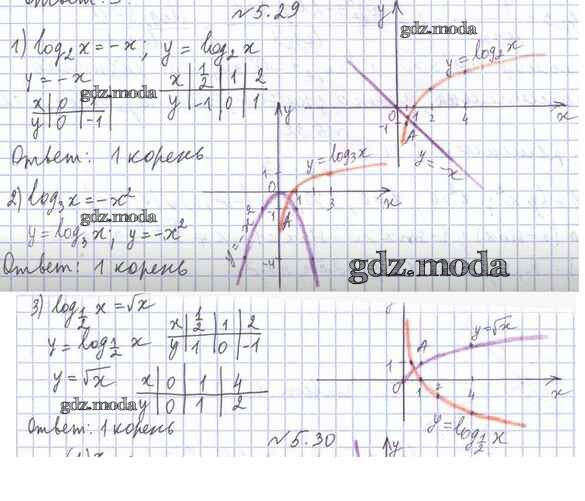 №5.29
1) log₂x = -x; y = log₂x
y = -x
x | 0 | 1
y | 0 | -1
x | 1/2 | 1 | 2
y | -1 | 0 | 1
Ответ: 1 корень
y
gdz.moda
y = log₂x
0 1 2 4 x
-1 A
y = -x
gdz.moda
2) log₃x = -x²
y = log₃x; y = -x²
Ответ: 1 корень
gdz.moda
y
1
y = log₃x
0 3 x
-1 A
-4
y = -x²
gdz.moda
3) log½ x = √x
y = log½ x
x | 1/2 | 1 | 2
y | 1 | 0 | -1
y = √x
x | 0 | 1 | 4
y | 0 | 1 | 2
gdz.moda
Ответ: 1 корень
A
y = √x
1
0 1 2 4 x
y = log½ x
№5.30
y